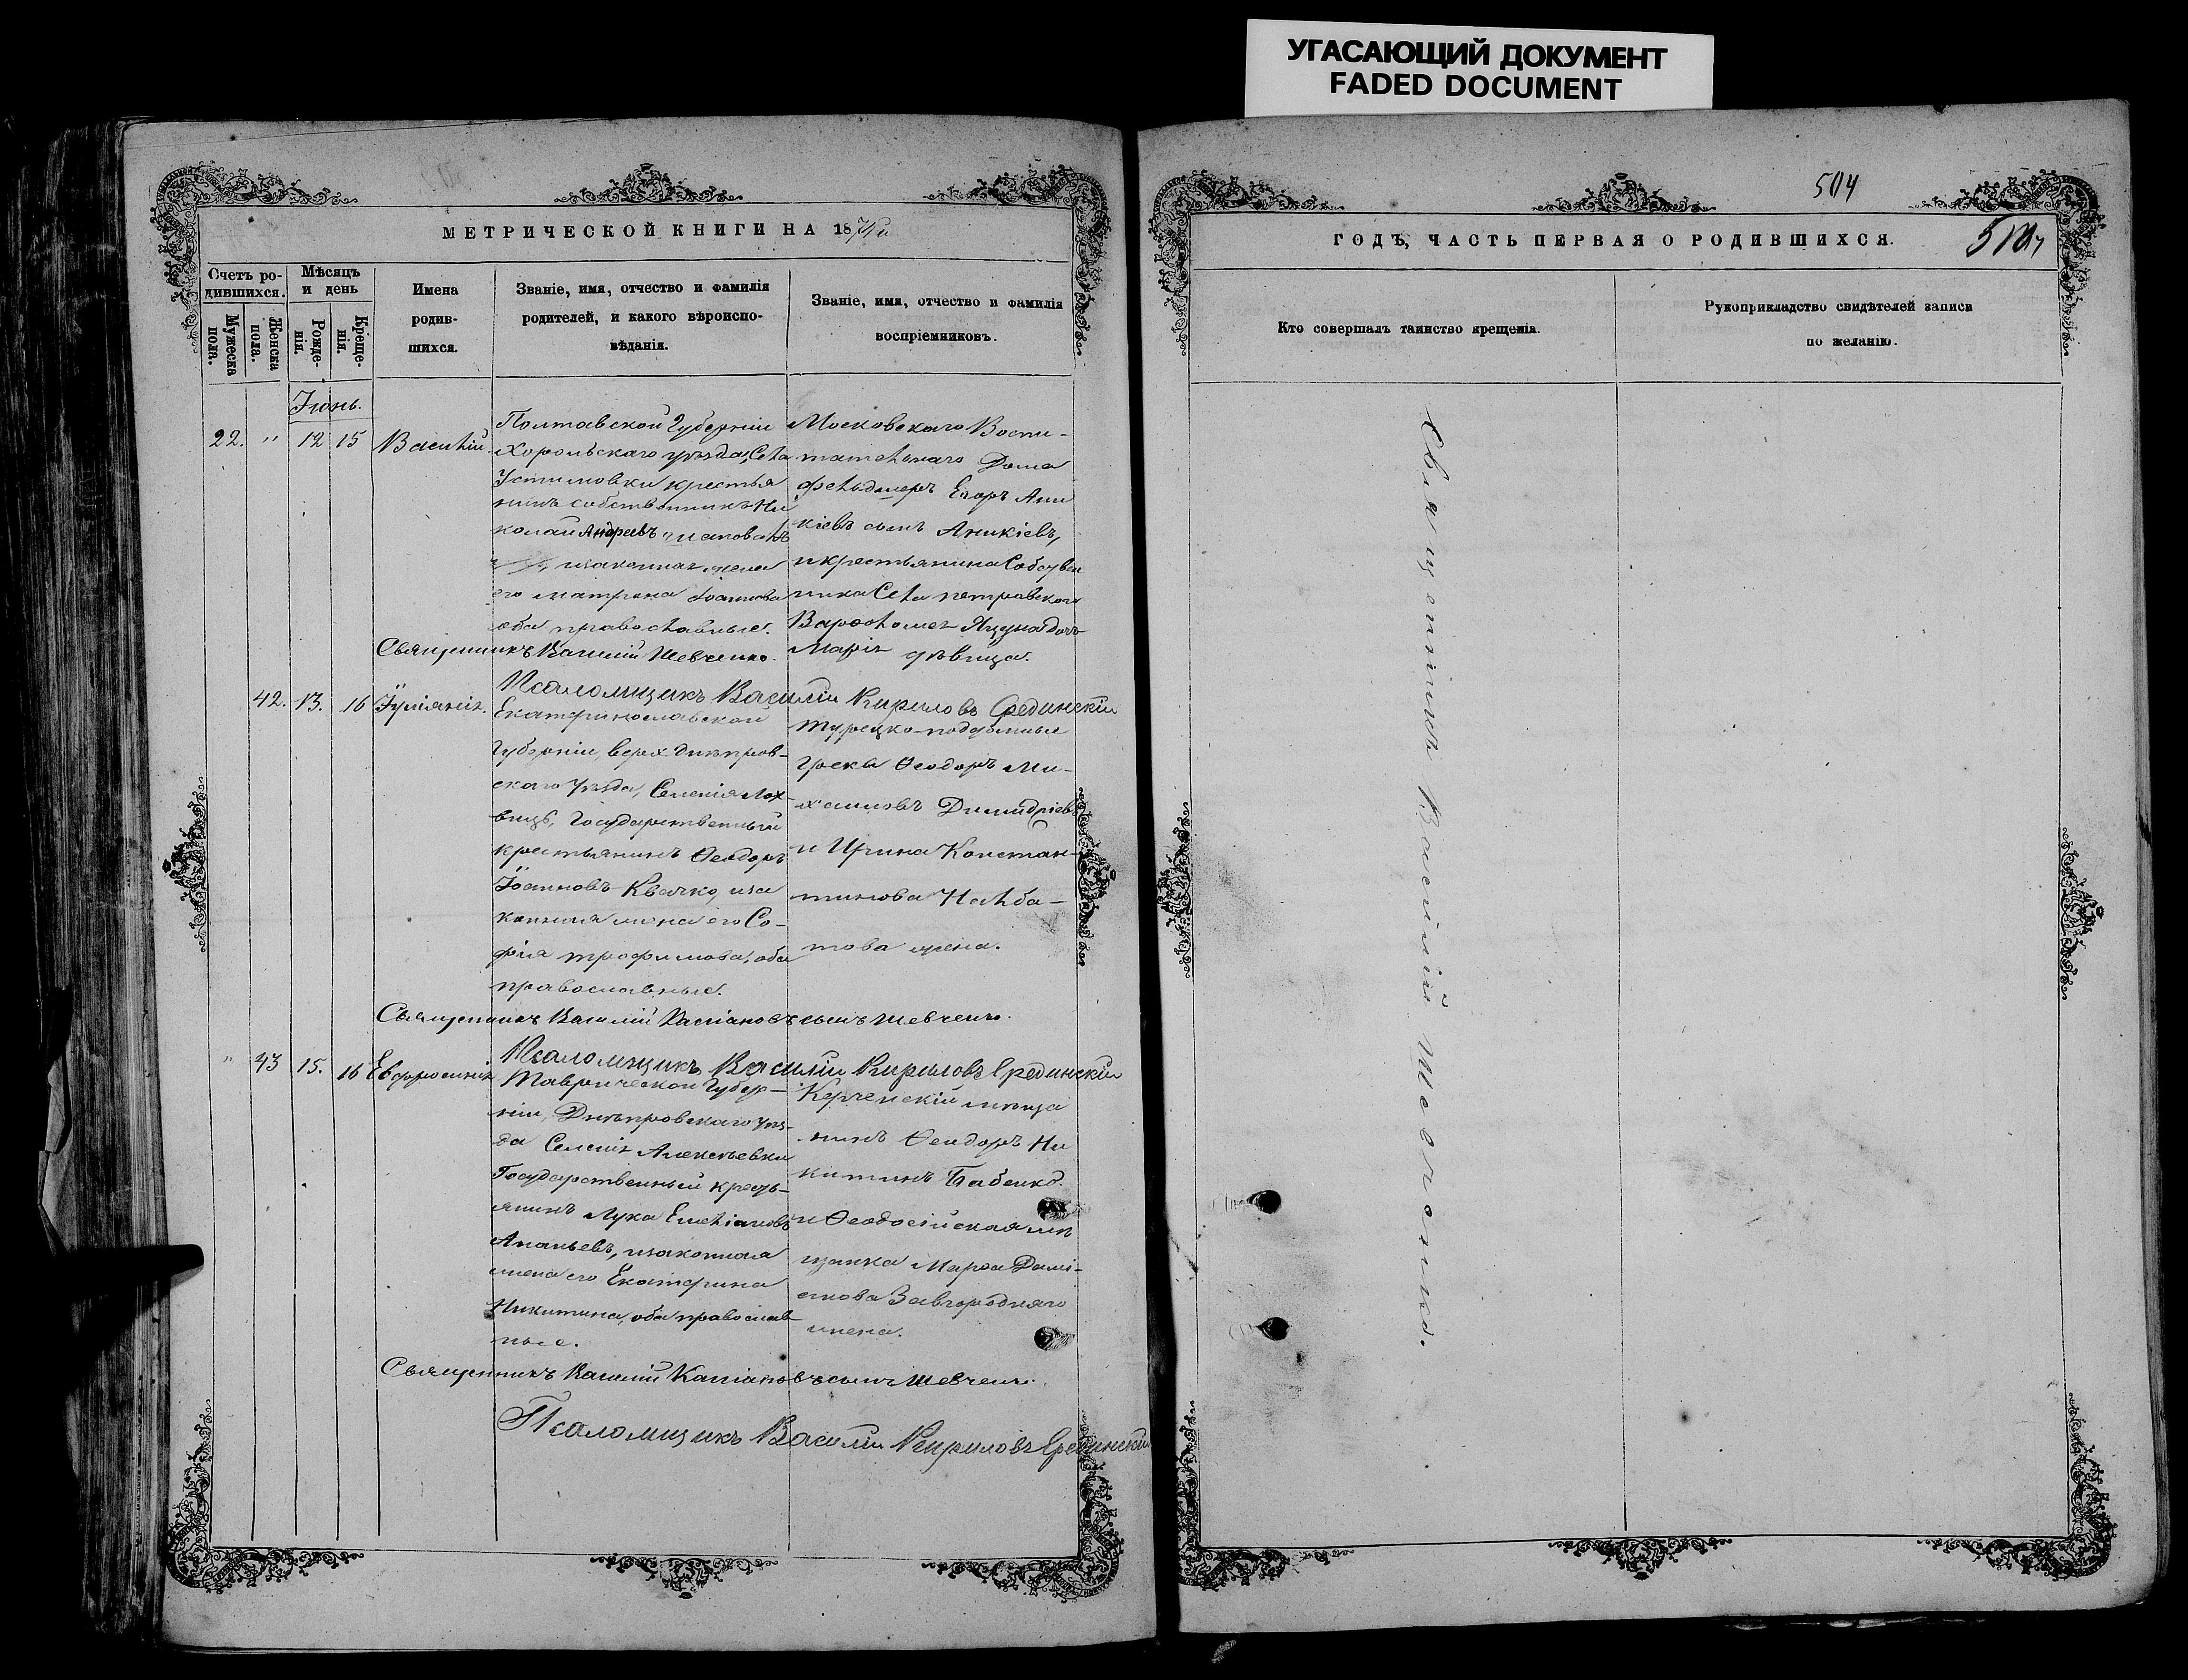 УГАСАЮЩИЙ ДОКУМЕНТ
FADED DOCUMENT
МЕТРИЧЕСКОЙ КНИГИ НА 18
Счетъ ро-
дившихся.
Мужеска
пола.
Женска
пола.
Мѣсяцъ
и день
Рожде-
нія.
Креще-
нія.
Имена
родив-
шихся.
Званіе, имя, отчество и фамилія
родителей, и какого вѣроиспо-
вѣданія.
Званіе, имя, отчество и фамилія
воспріемниковъ.
Іюнь.
22. " 12 15 Василій.
Полтавской Губерніи
Хорольскаго уѣзда, Села
Устимовки крестья
нинъ собственникъ Ни
колай Андреевъ
изаконная жена
его Матрона Іоаннова
оба православные.
Московскаго Воспи-
тательнаго Дома
фельдшеръ Егоръ Ани
кіевъ сынъ Аникіевъ,
и крестьянина Собствен
ника Села Петровскаго
Варѳоломея Яцуна дочь
Марія дѣвица.
Священникъ Василій Шевченко.
Псаломщикъ Василій Кириловъ Срединскій
42. 13. 16 Іуліанія.
Екатеринославской
Губерніи, верхднѣпров-
скаго Уѣзда, Селенія Лох-
вицъ, Государственный
крестьянинъ Ѳеодоръ
Іоанновъ Квачко, иза
конная жена его Со-
фія трофимова, оба
православные.
Турецко-подданные
греки Ѳеодоръ Ми-
хаиловъ Димидріевъ
и Ирина Констан-
тинова Налба-
това жена.
Священникъ Василій Кассіановъ сынъ Шевченко.
Псаломщикъ Василій Кириловъ Срединскій
" 43 15. 16 Евфросинія
Таврической Губер-
ніи, Днѣпровскаго Уѣз-
да Селенія Алексѣевки
Государственный кресть-
янинъ Лука Емеліановъ
Ананьевъ, изаконная
жена его Екатерина
Никитина, оба православ-
ные.
Керченскій мѣща
нинъ Ѳеодоръ Ни
китинъ Бабенко.
и Ѳеодосійская мѣ
щанка Марѳа Дамі-
анова Завгородняго
жена.
Священникъ Василій Кассіановъ сынъ Шевченко.
Псаломщикъ Василій Кириловъ Срединскій
504
ГОДЪ, ЧАСТЬ ПЕРВАЯ О РОДИВШИХСЯ.
Кто совершалъ таинство крещенія.
Рукоприкладство свидѣтелей записи
по желанію.
Священникъ Василій Шевченко.